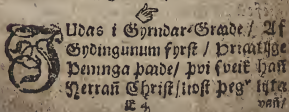 ☞
JUdas i Gyrndar-Græde / Af
Gydingunum fyrst / Prijatijge
Peninga þaade / þvi sveik hañ
Herrañ Christ / liost þeg' lijka
vañ/